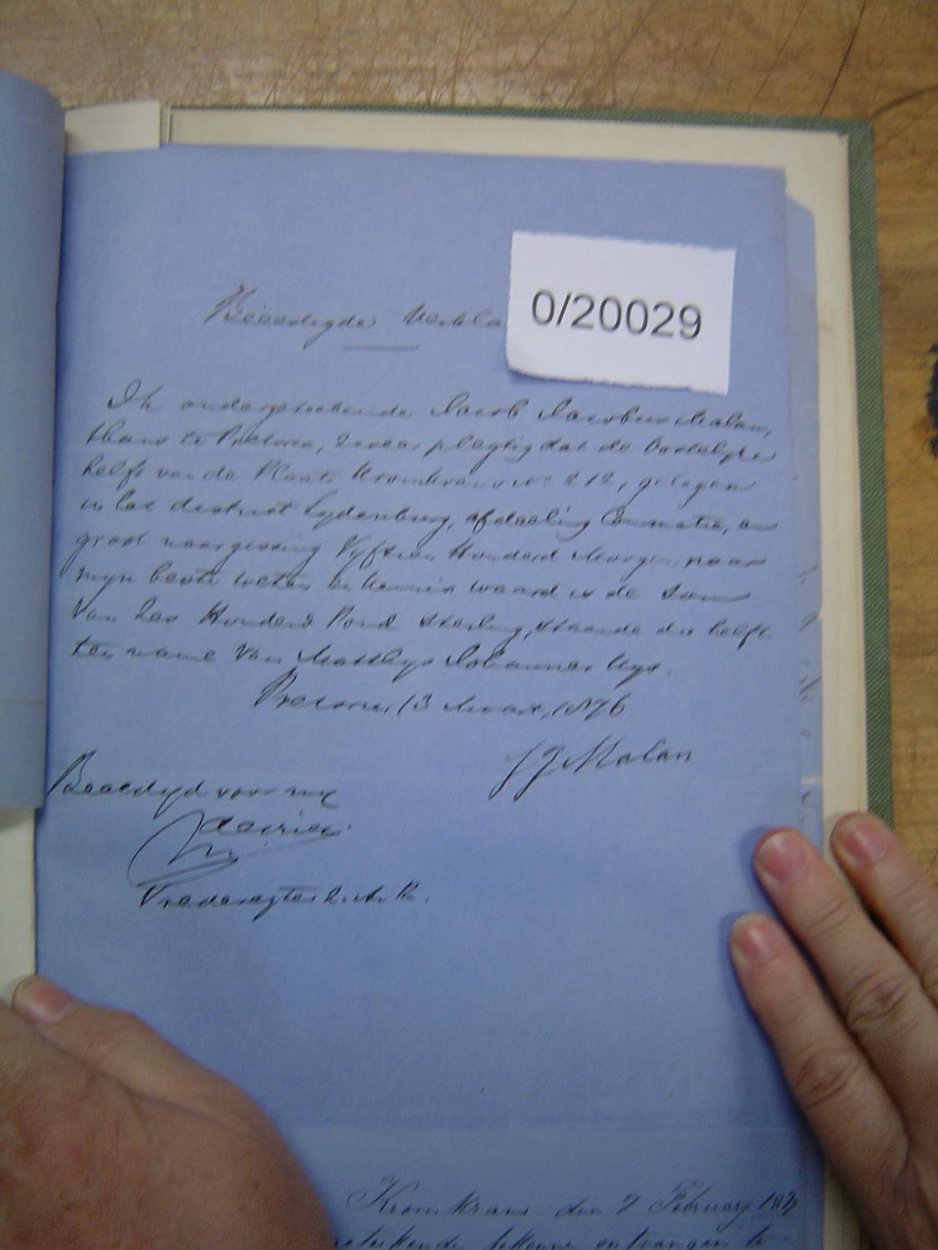 Beeedigde Verkla
0/20029
Ik ondergeteekende Jacob Jacobus Malan,
thans te Pretoria, zweer plegtig dat de Oostelyke
helft van de Plaats Kromkrans No 212, gelegen
in het district Lydenburg, afdeeling Commatie, en
groot naar gissing Vyftien Honderd Morgen, naar
myn beste weten en kennis waard is de Som
van Zes Honderd Pond Sterling, staande die helft
ten name van Matthys Johannes Uys.
Pretoria, 13 Maart, 1876
JJ Malan
Beeedigd voor my
Vrederegter Z.A.R.
Kromkrans den 7 February 187
bekenne ontvangen te